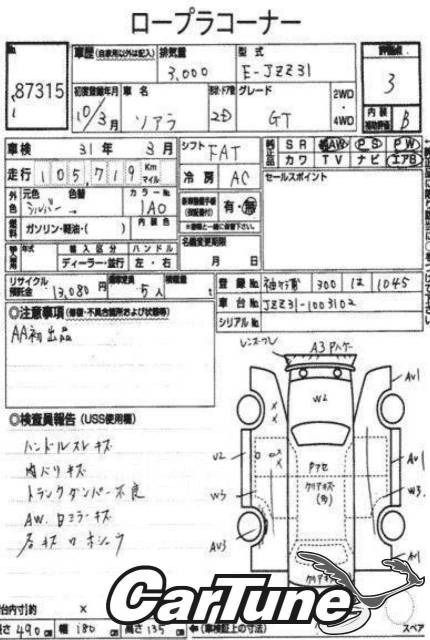 ロープラコーナー
87315
車歴 (自家用以外は記入)
排気量
3,000
型式
E-JZZ31
評価点
3
初度登録年月
10/3月
車名
ソアラ
形状・ドア数
2D
グレード
GT
2WD
・
4WD
内装
補助評価
B
車検 31年 3月
シフト FAT
純正品
SR AW PS PW
カワ TV ナビ エアB
走行 105,719 Km
マイル
冷房 AC
セールスポイント
外色
元色 色替
シルバー →
カラーNo.
1A0
有・無
燃料
ガソリン・軽油・( )
内装色
名義変更期限
月 日
輸入車用
年式
輸入区分
ハンドル
ディーラー・並行
左・右
リサイクル
預託金
13,080円
乗車定員
5人
積載量
t
登録No.
袖ケ浦 300 は 1045
車台No.
JZZ31-1003102
シリアルNo.
◎注意事項 (修復・不具合箇所および状態等)
AA初出品
◎検査員報告 (USS使用欄)
ハンドルスレキズ
内バリキズ
トランクダンパー不良
AW、Dミラーキズ
A3
W2
U2
W3
AU3
AU1
AU1
W3
AU1
Pアセ
クリアキズ
(多)
CarTune
長さ 490 cm 幅 180 cm 高さ 135 cm
←(車検証上の寸法)
スペア